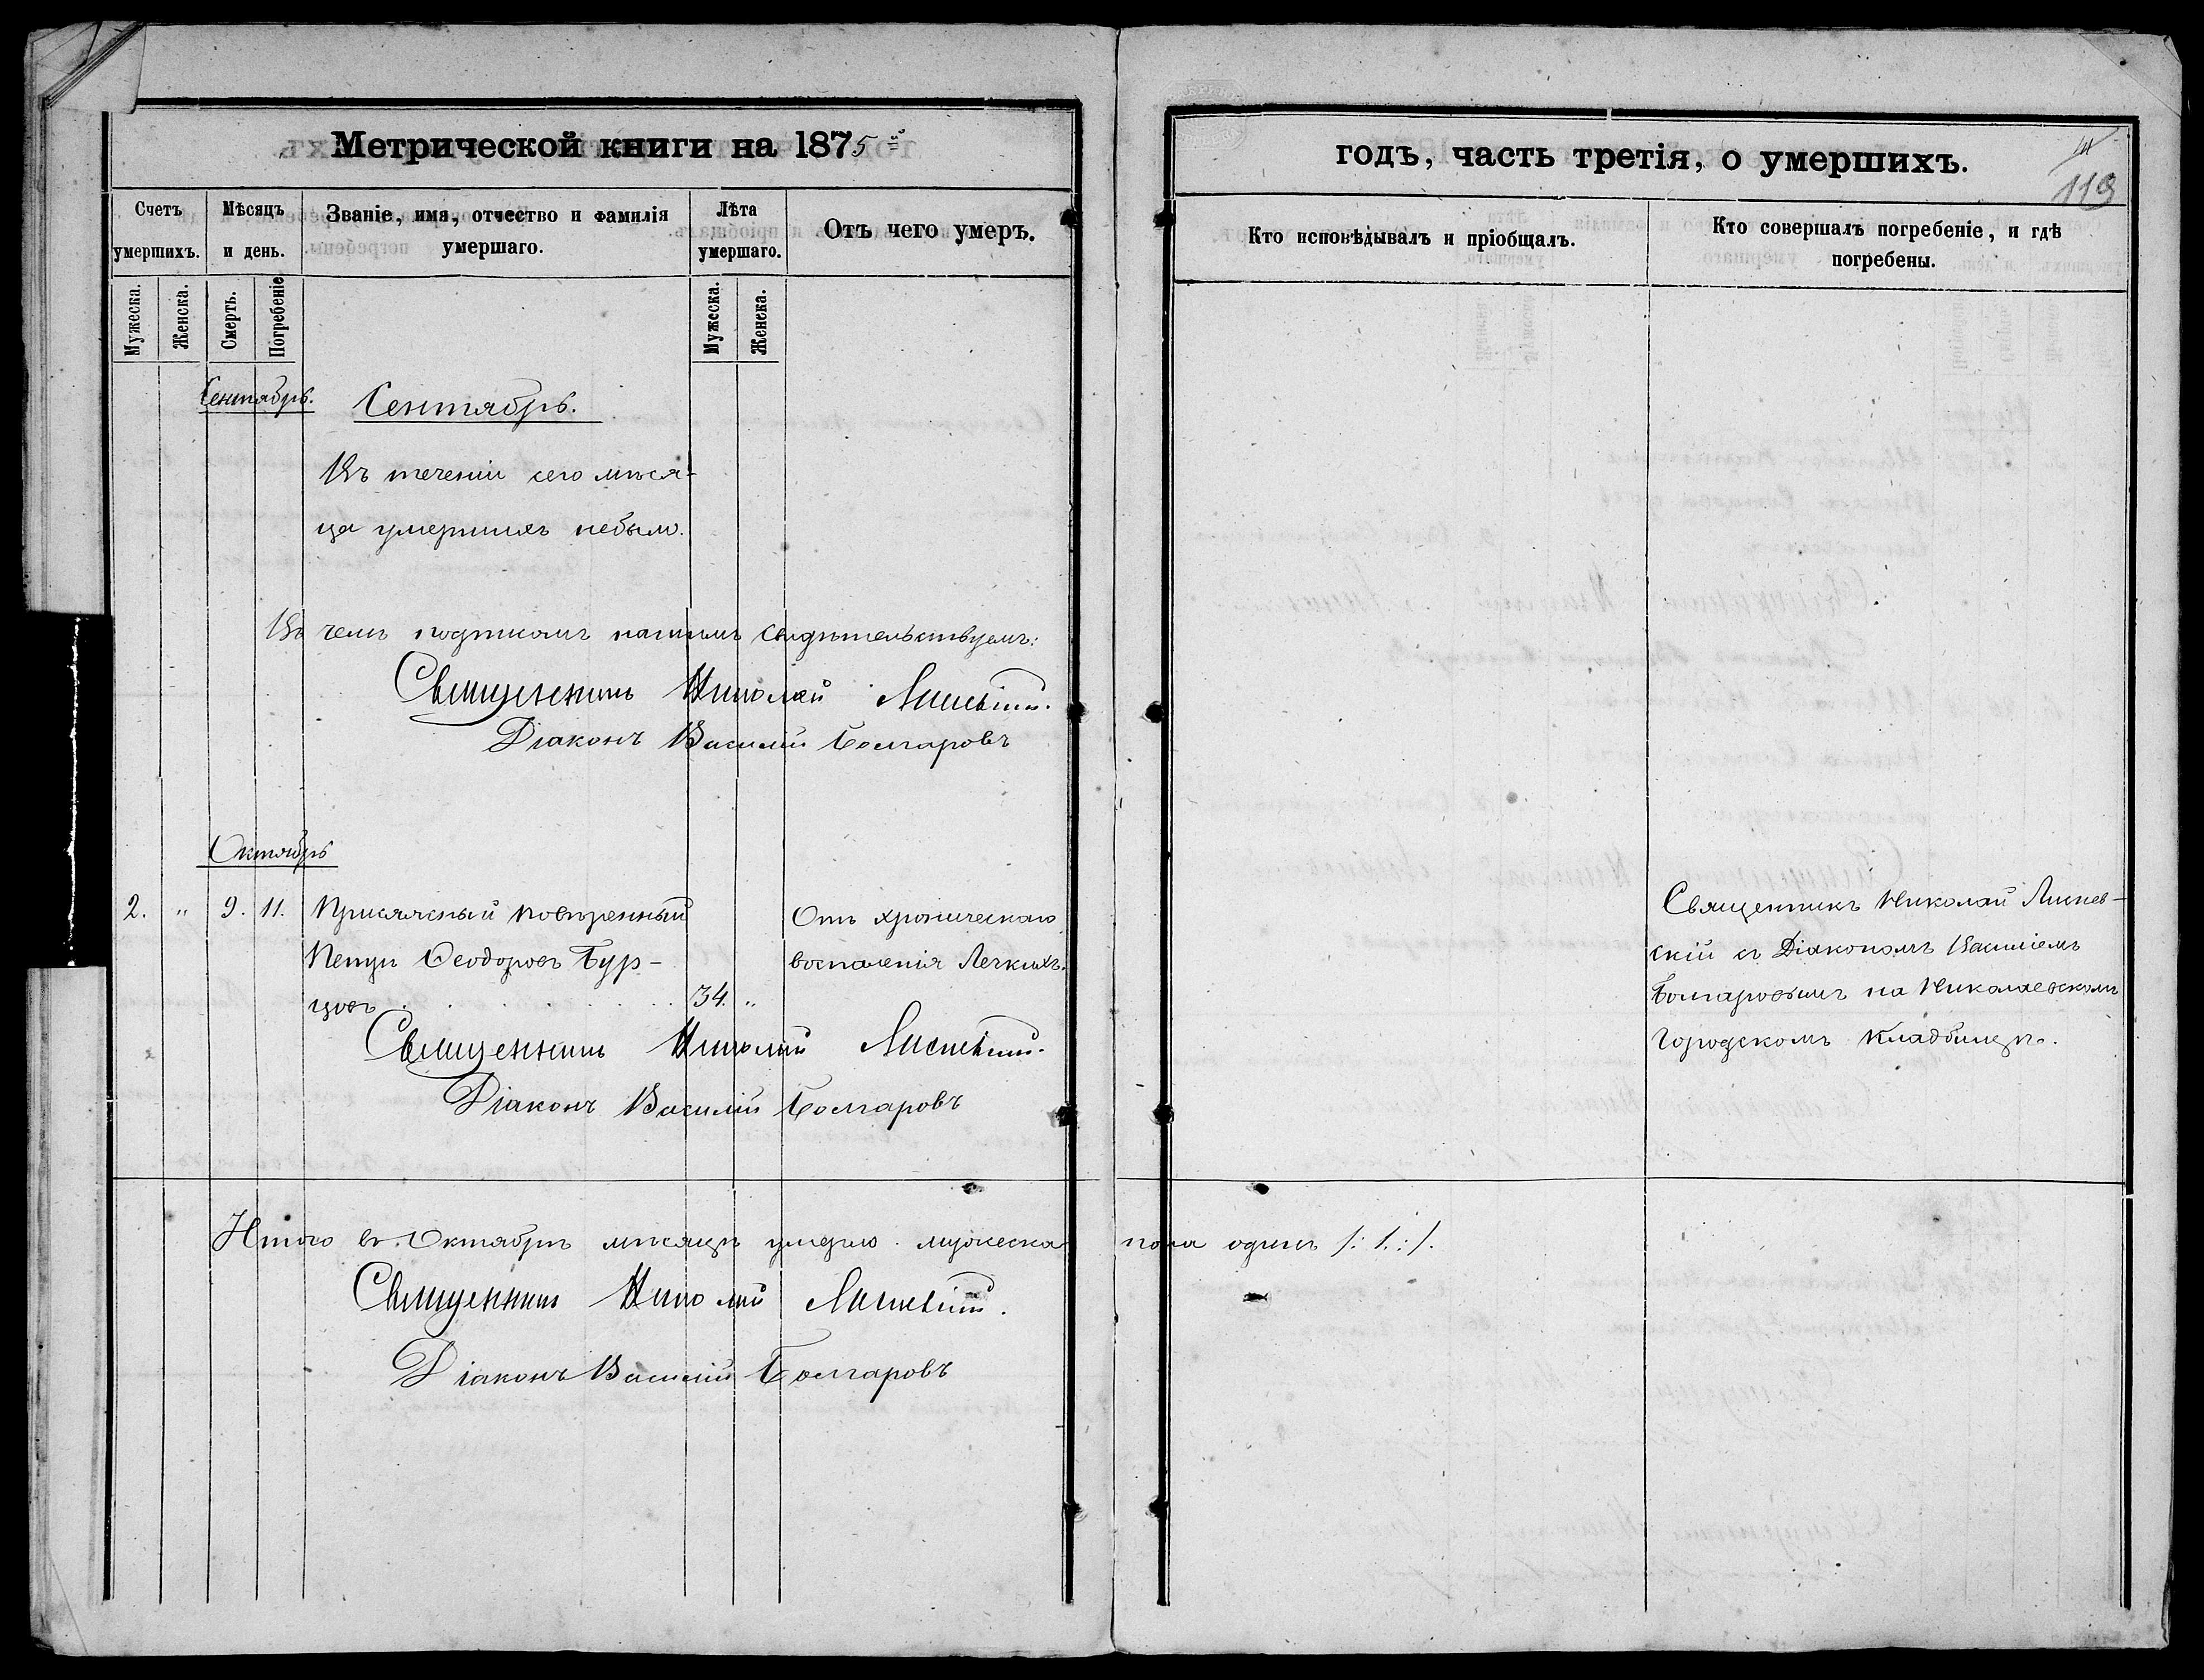 Метрической книги на 1875й
годъ, часть третія, о умершихъ.
119
Счетъ умершихъ.
Мѣсяцъ и день.
Званіе, имя, отчество и фамилія умершаго.
Лѣта умершаго.
Отъ чего умеръ.
Кто исповѣдывалъ и пріобщалъ.
Кто совершалъ погребеніе, и гдѣ погребены.
Мужеска.
Женска.
Смерть.
Погребеніе
Мужеска.
Женска.
Сентябрь.
Сентябрь.
Въ теченіи сего мѣся-
ца умершихъ небыло.
Въ чемъ подписомъ нашимъ свидѣтельствуемъ:
Священникъ Николай
Діаконъ Василій Болгаровъ
Октябрь
2. " 9. 11. Присяжный повѣренный
Петръ Ѳеодоровъ Бур-
цовъ . . . . . . . 34. "
Отъ хроническаго
воспаленія Легкихъ.
Священникъ Николай
-
скій съ Діакономъ Василіемъ
Болгаровымъ на Николаевскомъ
Городскомъ Кладбищѣ.
Священникъ Николай
Діаконъ Василій Болгаровъ
Итого въ Октябрѣ мѣсяцѣ умерло мужеска пола одинъ /: 1. :/.
Священникъ Николай
Діаконъ Василій Болгаровъ